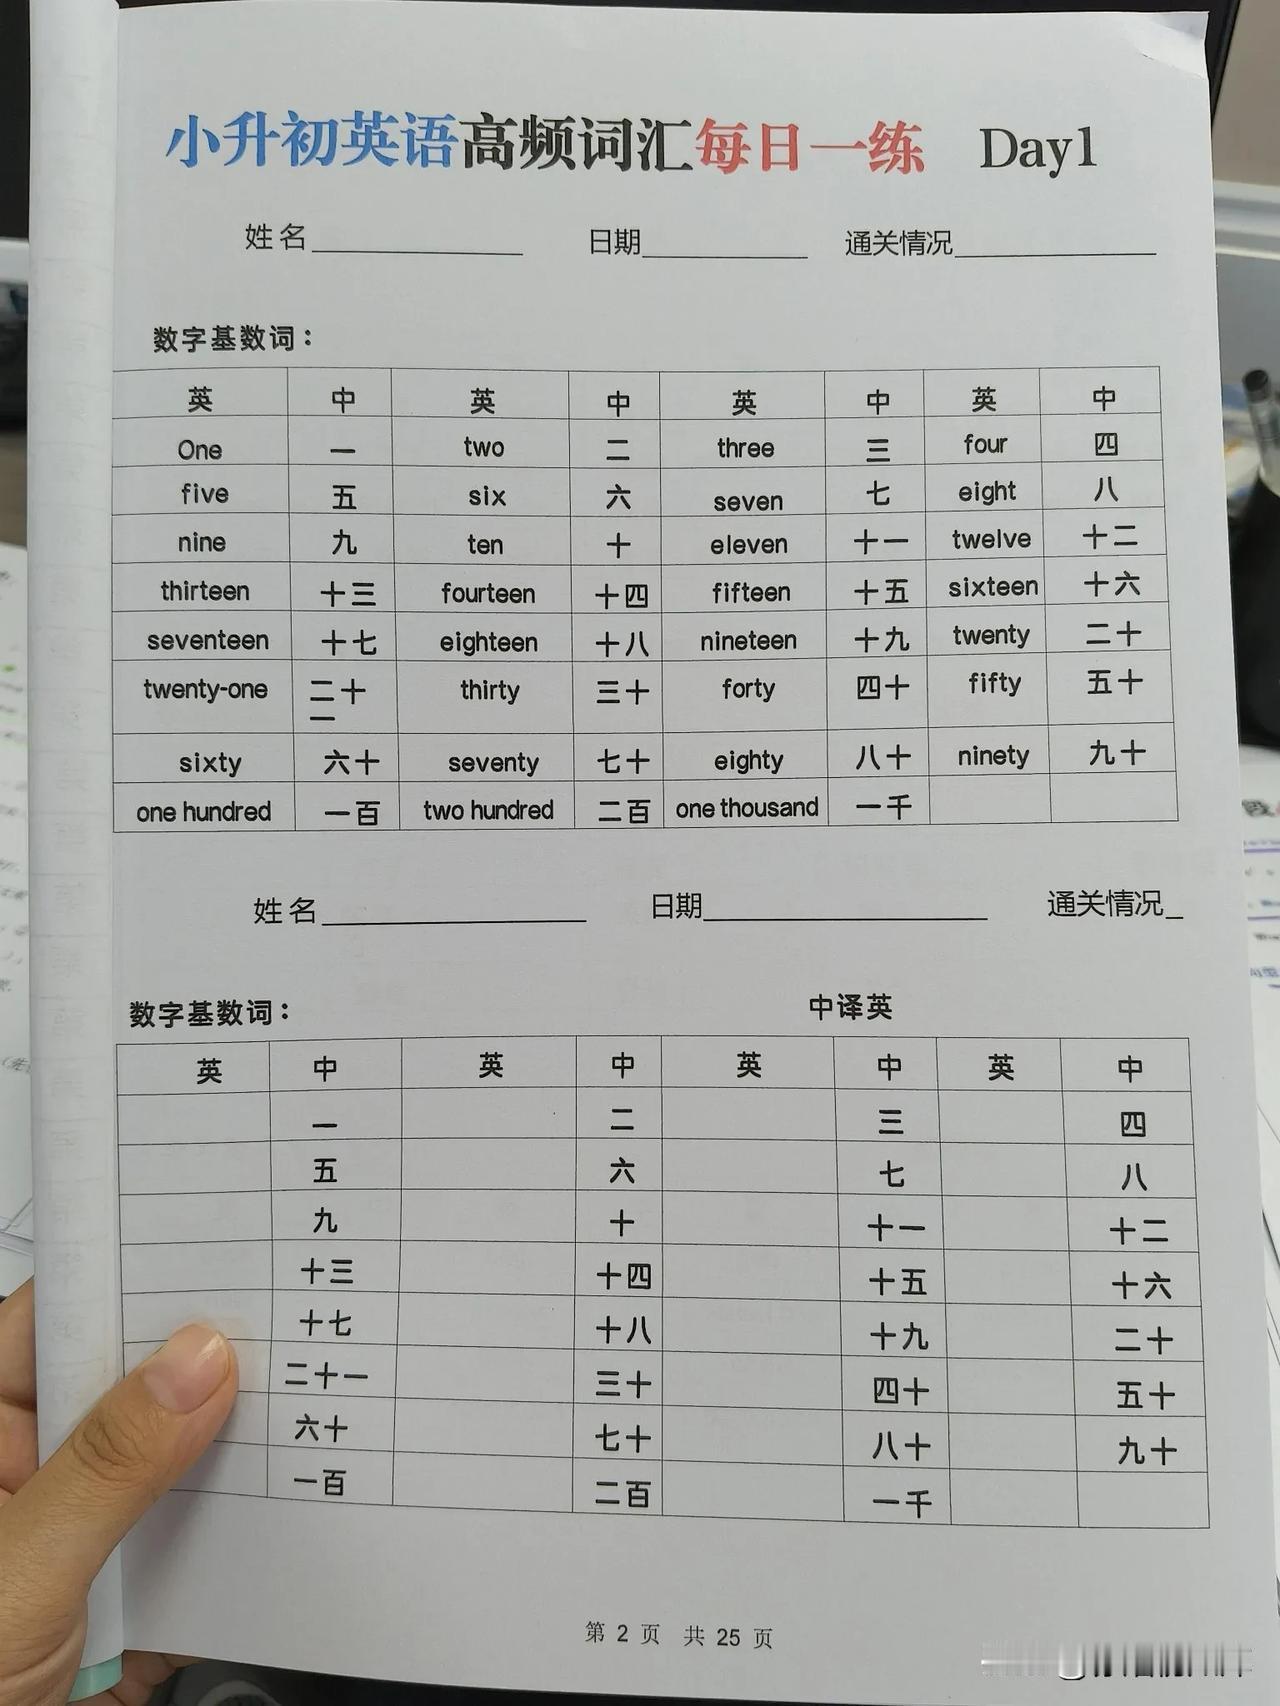 小升初英语高频词汇每日一练 Day1
姓名 日期 通关情况
数字基数词：
英 中 英 中 英 中 英 中
One 一 two 二 three 三 four 四
five 五 six 六 seven 七 eight 八
nine 九 ten 十 eleven 十一 twelve 十二
thirteen 十三 fourteen 十四 fifteen 十五 sixteen 十六
seventeen 十七 eighteen 十八 nineteen 十九 twenty 二十
twenty-one 二十一 thirty 三十 forty 四十 fifty 五十
sixty 六十 seventy 七十 eighty 八十 ninety 九十
one hundred 一百 two hundred 二百 one thousand 一千
姓名 日期 通关情况
数字基数词： 中译英
英 中 英 中 英 中 英 中
一 二 三 四
五 六 七 八
九 十 十一 十二
十三 十四 十五 十六
十七 十八 十九 二十
二十一 三十 四十 五十
六十 七十 八十 九十
一百 二百 一千
第 2 页 共 25 页